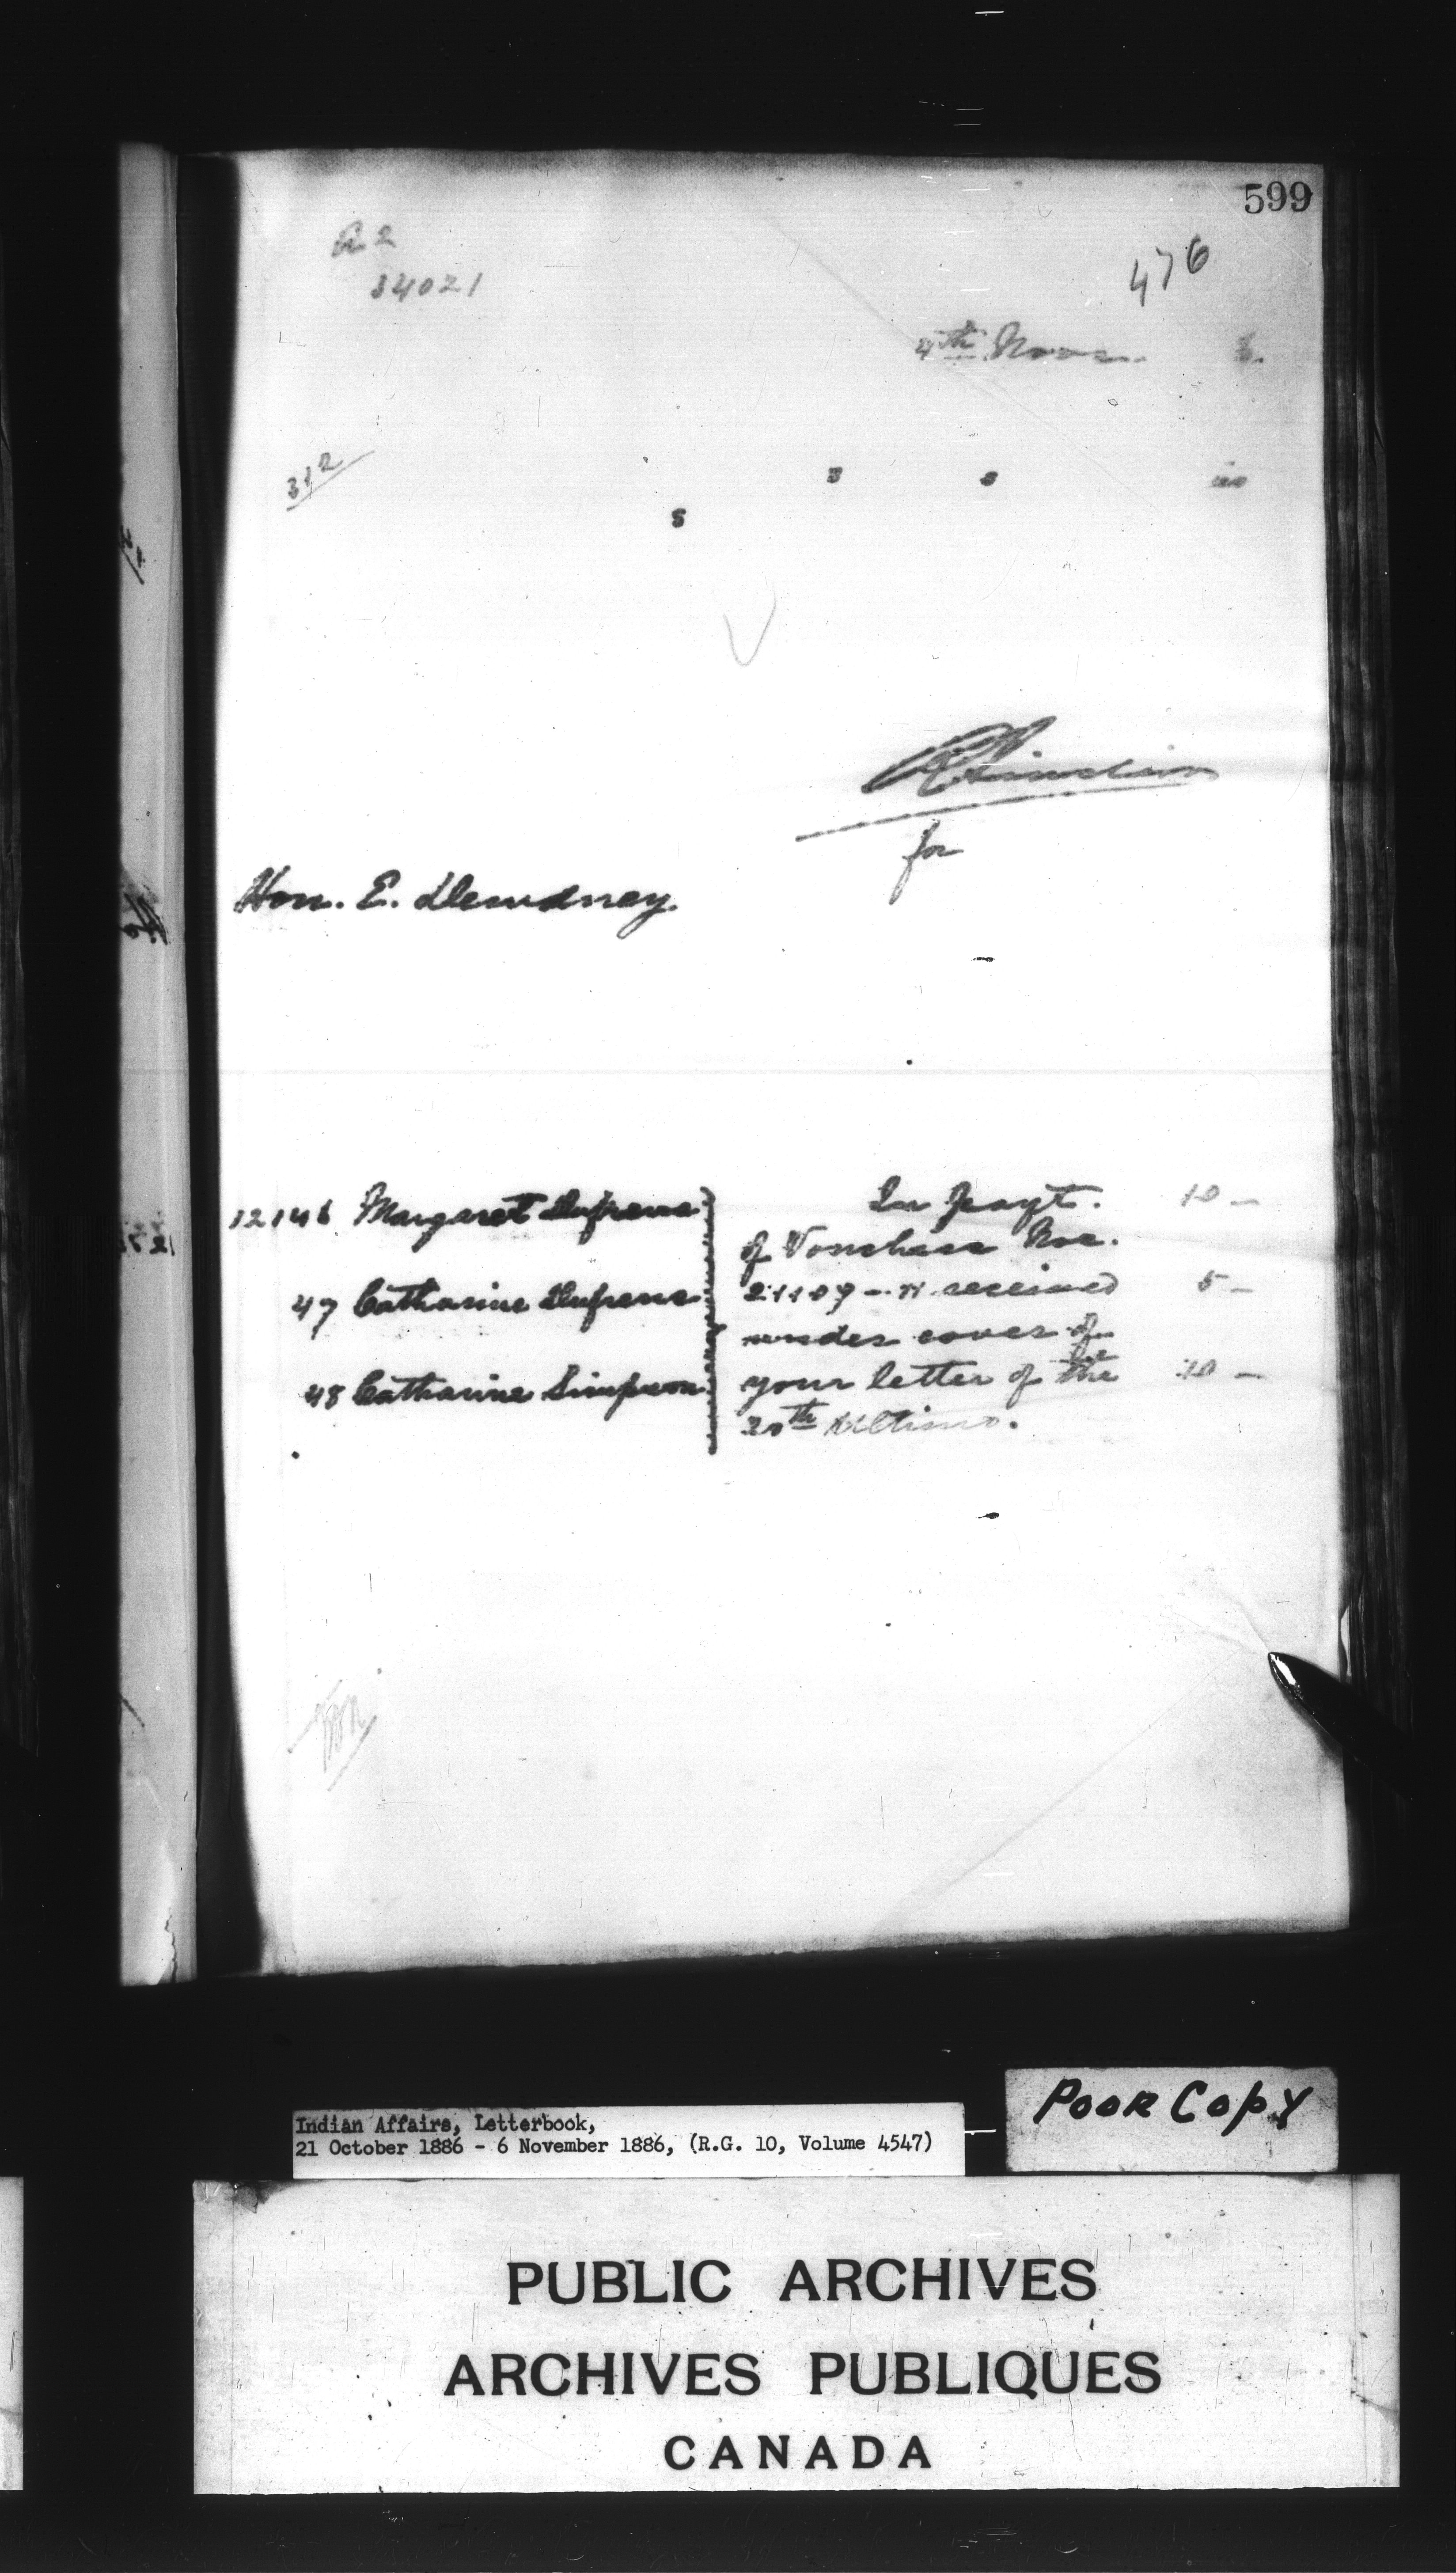 599
R 2
34021
476
4th Novr. 6.
312
s s
s
for
Hon. E. Dewdney.
12146 Margaret Dufrene In payt. 10 —
of Vouchers Nos.
47 Catharine Dufrene received 5 —
under cover of
48 Catharine Simpson your letter of the 10 —
20th Ultimo.
Indian Affairs, Letterbook,
21 October 1886 - 6 November 1886, (R.G. 10, Volume 4547)
POOR COPY
PUBLIC ARCHIVES
ARCHIVES PUBLIQUES
CANADA